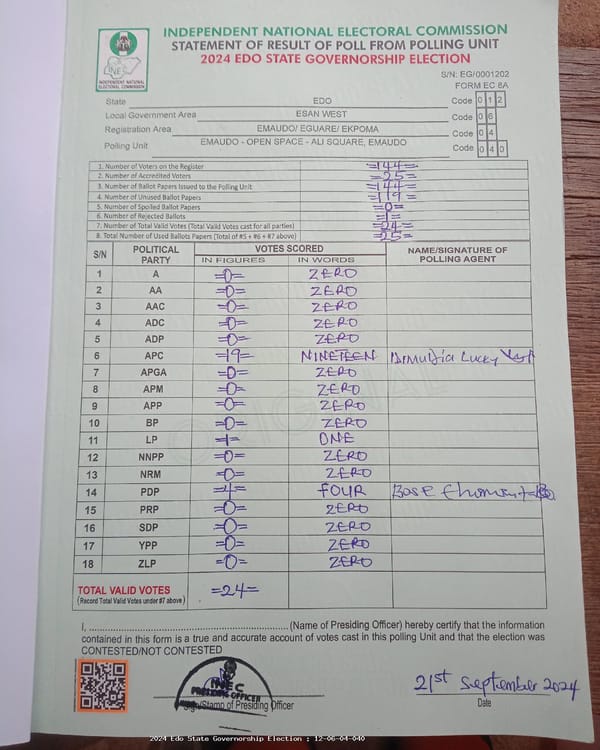 INDEPENDENT NATIONAL ELECTORAL COMMISSION
STATEMENT OF RESULT OF POLL FROM POLLING UNIT
2024 EDO STATE GOVERNORSHIP ELECTION
INEC
INDEPENDENT NATIONAL ELECTORAL COMMISSION
S/N: EG/0001202
FORM EC 8A
State EDO Code 0 1 2
Local Government Area ESAN WEST Code 0 6
Registration Area EMAUDO/ EGUARE/ EKPOMA Code 0 4
Polling Unit EMAUDO - OPEN SPACE - ALI SQUARE, EMAUDO Code 0 4 0
1. Number of Voters on the Register =144=
2. Number of Accredited Voters =25=
3. Number of Ballot Papers Issued to the Polling Unit =144=
4. Number of Unused Ballot Papers =119=
5. Number of Spoiled Ballot Papers =0=
6. Number of Rejected Ballots =1=
7. Number of Total Valid Votes (Total Valid Votes cast for all parties) =24=
8. Total Number of Used Ballots Papers (Total of #5 + #6 + #7 above) =25=
S/N POLITICAL PARTY VOTES SCORED NAME/SIGNATURE OF POLLING AGENT
IN FIGURES IN WORDS
1 A =0= ZERO
2 AA =0= ZERO
3 AAC =0= ZERO
4 ADC =0= ZERO
5 ADP =0= ZERO
6 APC =19= NINETEEN Lucky
7 APGA =0= ZERO
8 APM =0= ZERO
9 APP =0= ZERO
10 BP =0= ZERO
11 LP =1= ONE
12 NNPP =0= ZERO
13 NRM =0= ZERO
14 PDP =4= FOUR
15 PRP =0= ZERO
16 SDP =0= ZERO
17 YPP =0= ZERO
18 ZLP =0= ZERO
TOTAL VALID VOTES =24=
(Record Total Valid Votes under #7 above)
ORIGINAL
I, ........................................................ (Name of Presiding Officer) hereby certify that the information
contained in this form is a true and accurate account of votes cast in this polling Unit and that the election was
CONTESTED/NOT CONTESTED
INEC
PRESIDING OFFICER
Sign/Stamp of Presiding Officer
21st September 2024
Date
2024 Edo State Governorship Election : 12-06-04-040